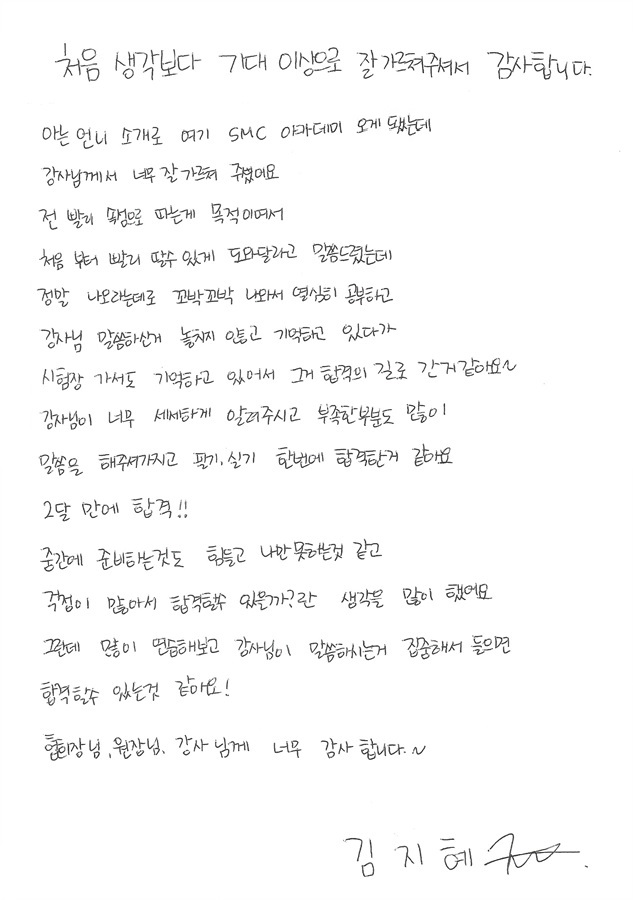 처음 생각보다 기대 이상으로 잘 가르쳐주셔서 감사합니다.
아는 언니 소개로 여기 SMC 아카데미 오게 됐는데
강사님께서 너무 잘 가르쳐 주셨어요
전 빨리 속성으로 따는게 목적이여서
처음 부터 빨리 딸수 있게 도와달라고 말씀드렸는데
정말 나오라는데로 꼬박꼬박 나와서 열심히 공부하고
강사님 말씀하신거 놓치지 안틓고 기억하고 있다가
시험장 가서도 기억하고 있어서 그게 합격의 길로 간거같아요~
강사님이 너무 세세하게 알려주시고 부족한부분도 많이
말씀을 해주셔가지고 필기, 실기 한번에 합격한거 같아요
2달 만에 합격!!
중간에 준비하는것도 힘들고 나만못하는것 같고
걱정이 많아서 합격할수 있을까?란 생각을 많이 했어요
그런데 많이 연습해보고 강사님이 말씀하시는거 집중해서 들으면
합격할수 있는것 같아요!
협회장님, 원장님, 강사님께 너무 감사합니다.~
김지혜